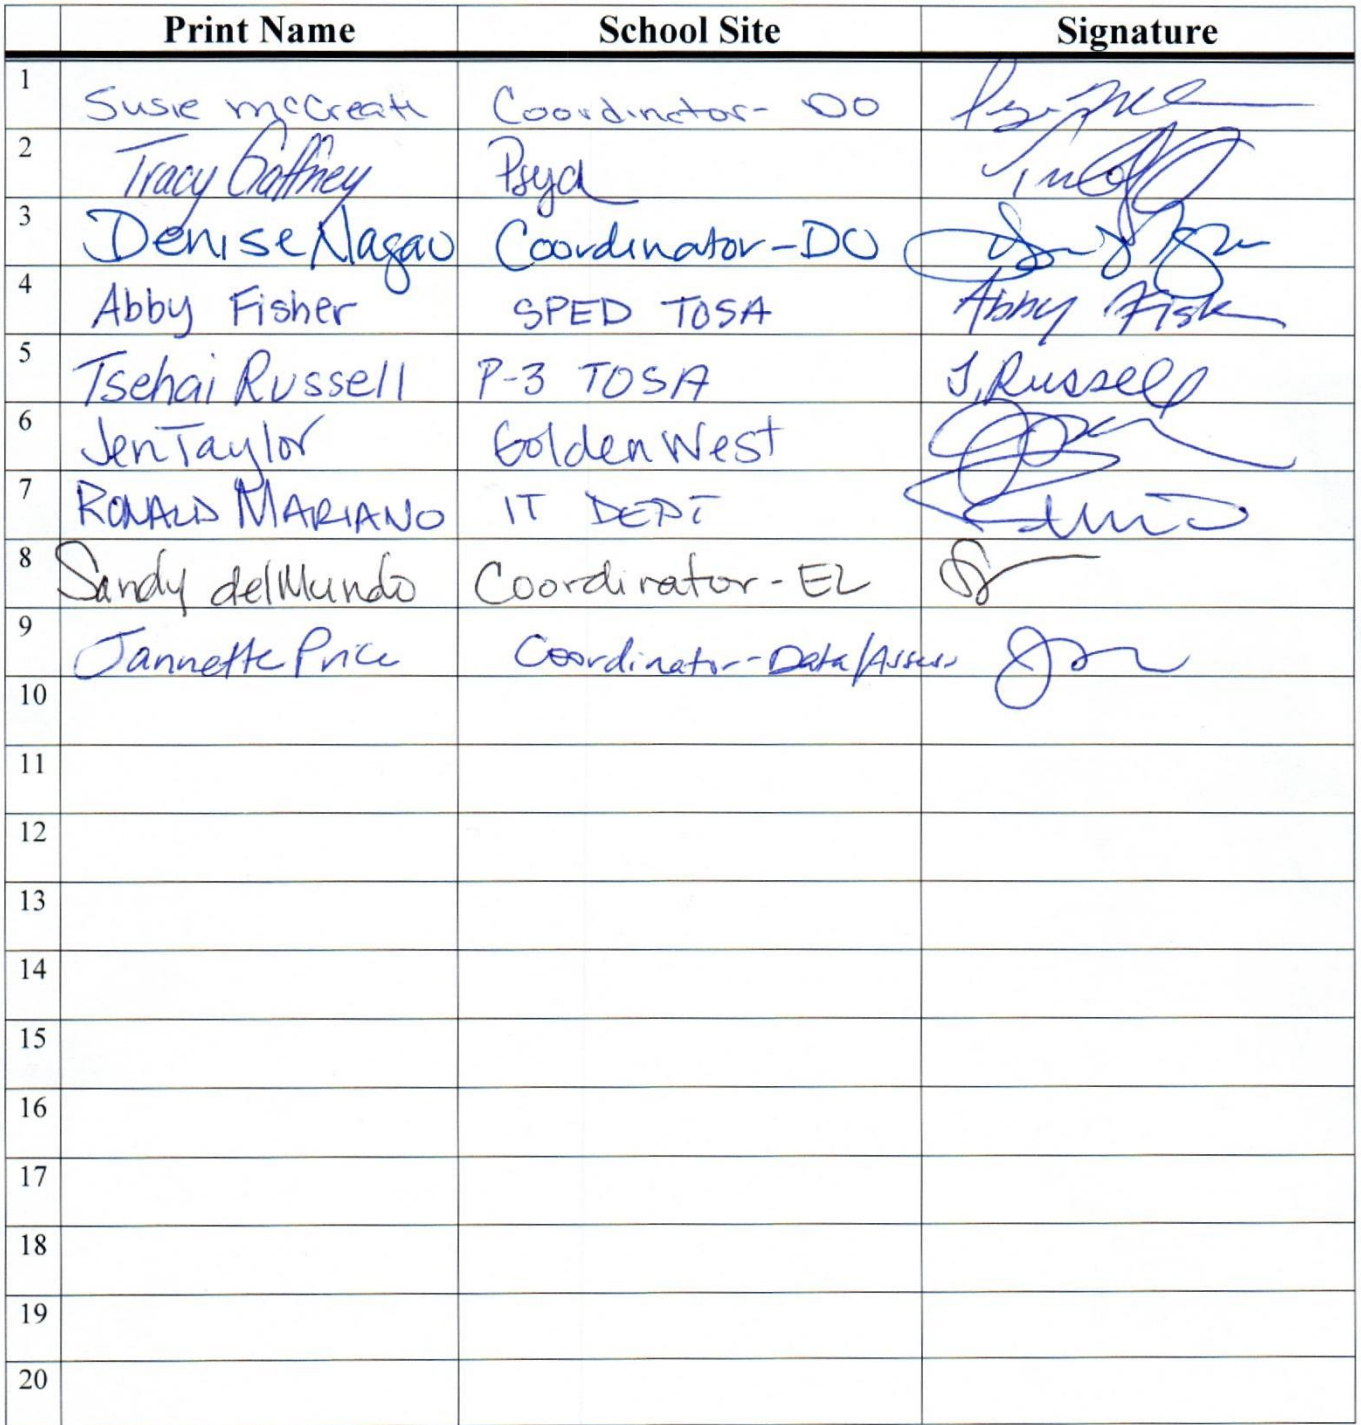 Print Name School Site Signature
1 Susie McCreath Coordinator- DO
2 Tracy Gaffney Psych
3 Denise Nagao Coordinator-DO
4 Abby Fisher SPED TOSA Abby Fish
5 Tsehai Russell P-3 TOSA T. Russell
6 Jen Taylor Golden West
7 RONALD MARIANO IT DEPT
8 Sandy delMundo Coordinator-EL
9 Jannette Price Coordinator-Data/Assess
10
11
12
13
14
15
16
17
18
19
20